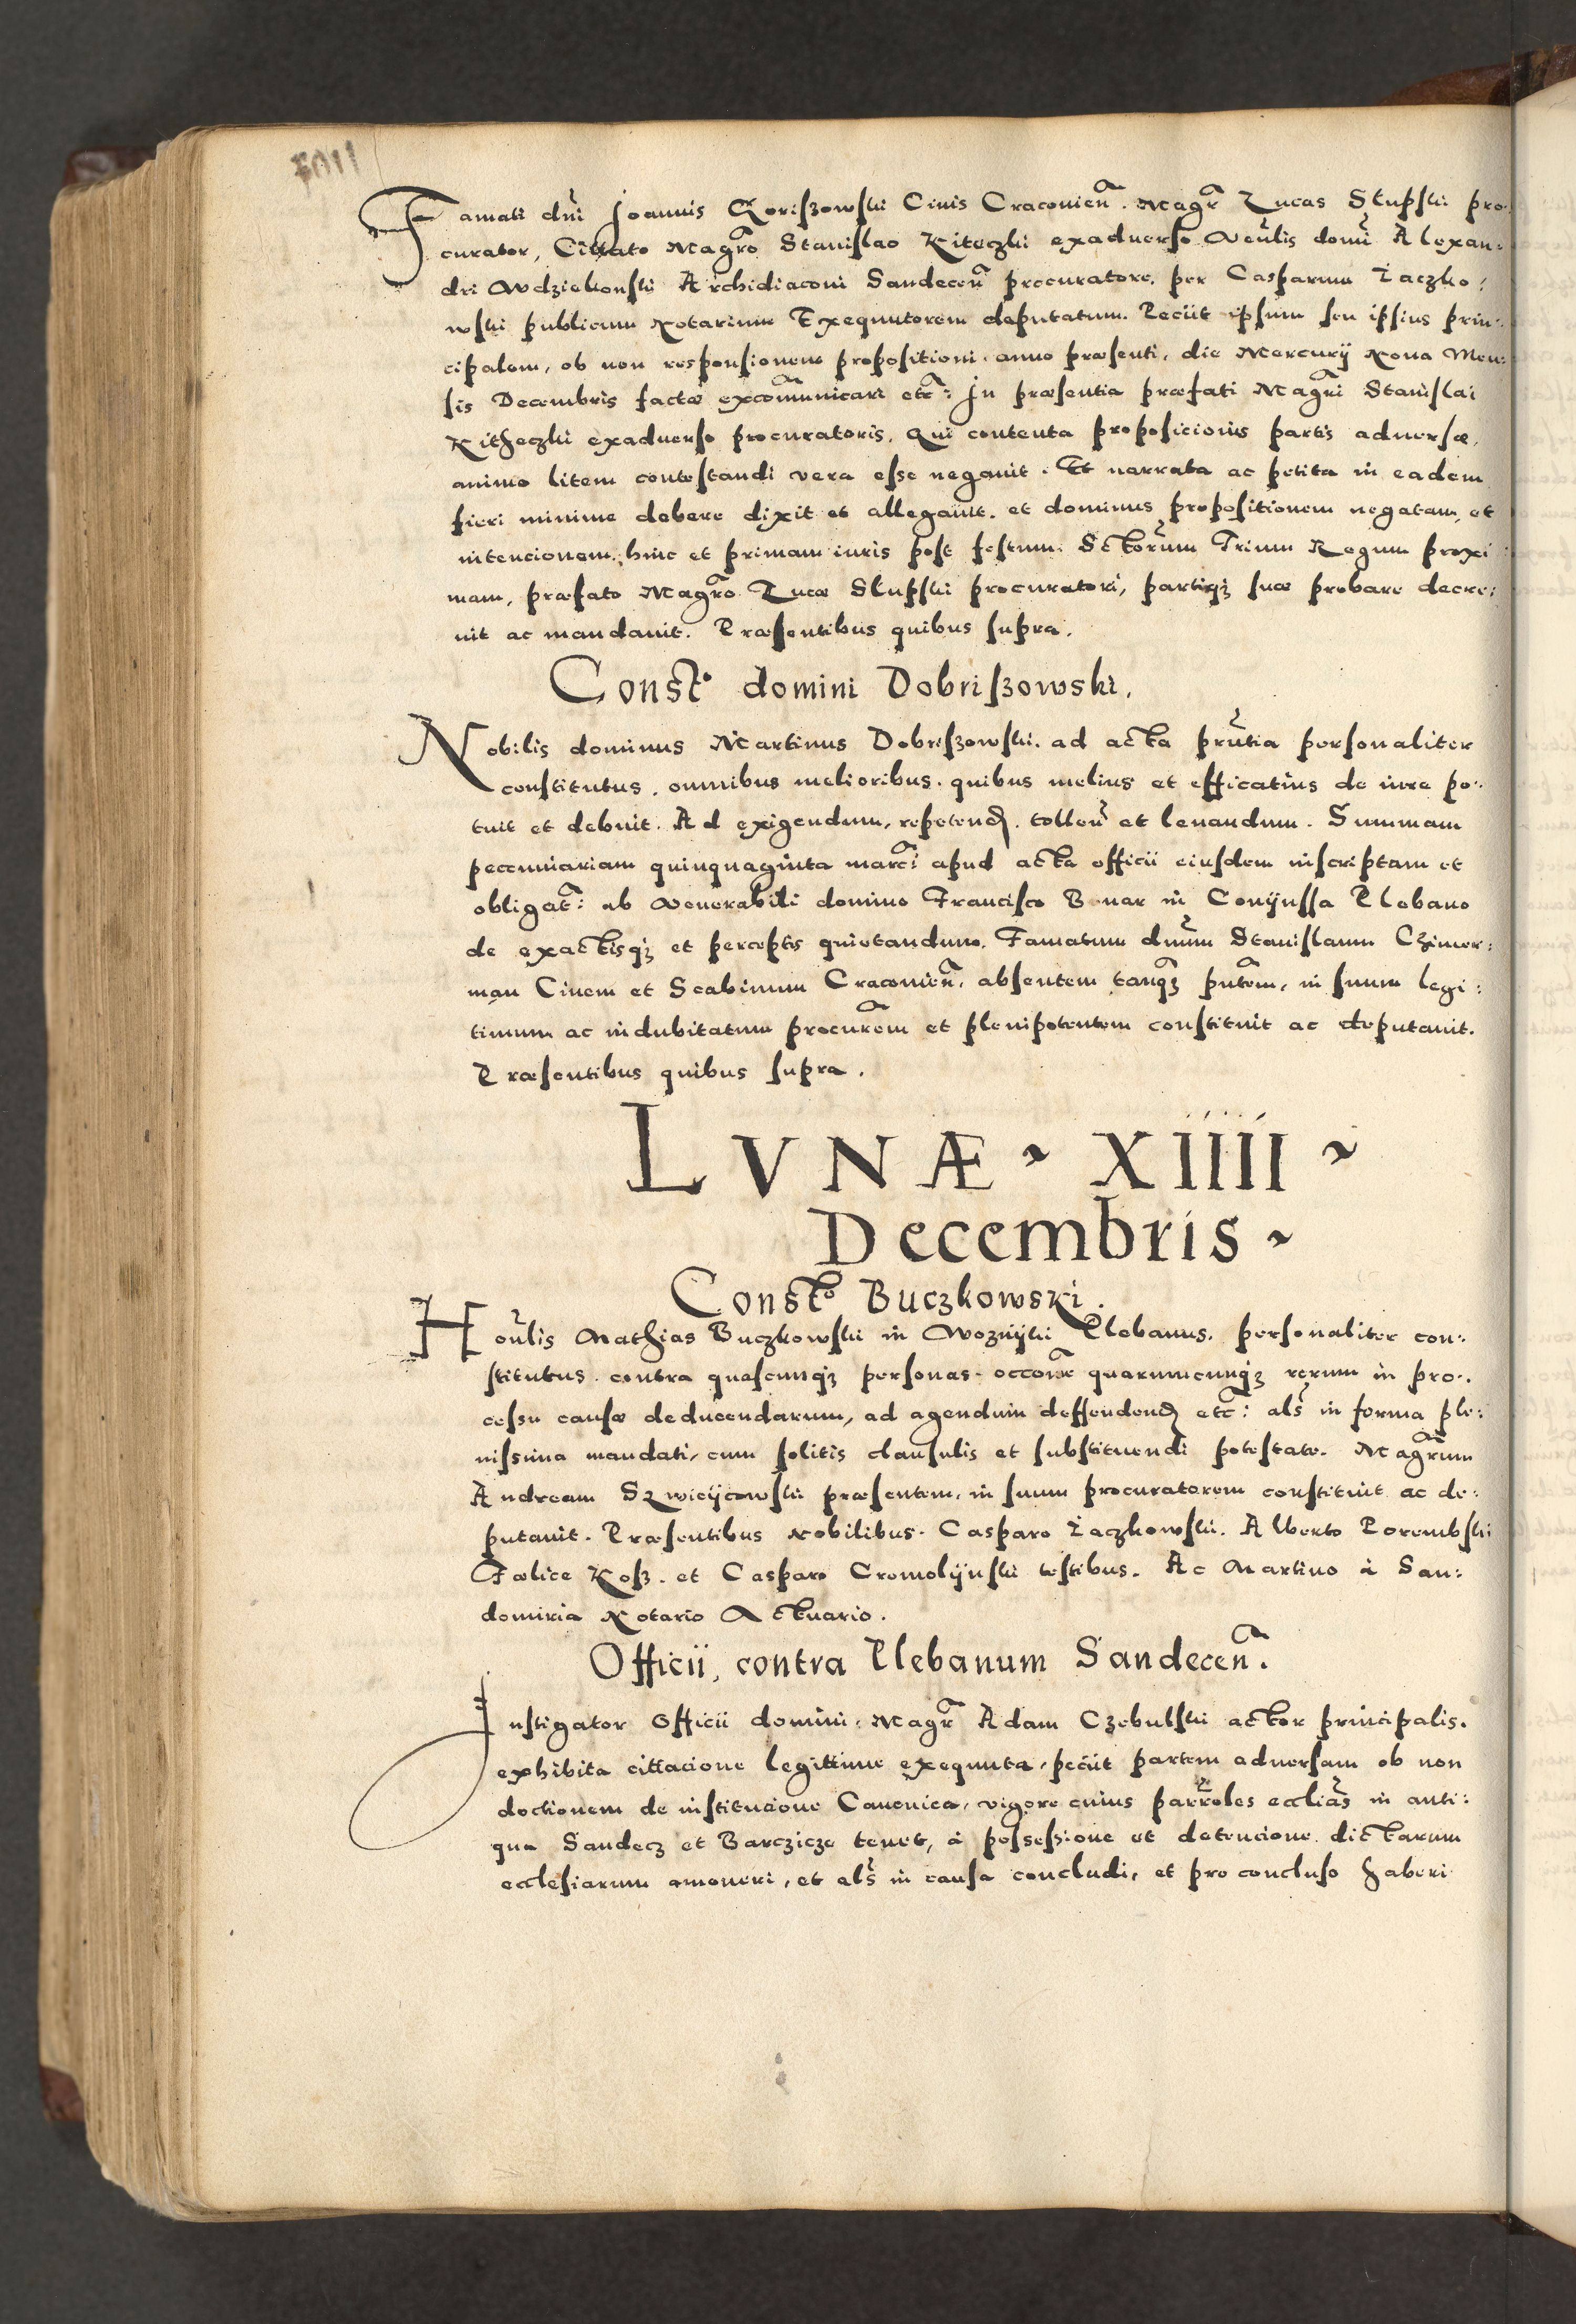 Famati dni Joannis Koriszowski Civis Craconien. Magr Lucas Slupski pro:
curator, Cittato Magro Stanislao Kiteczki exaduerso Venlis domi Alexan:
dri Wdziekonski Archidiaconi Sandecen procuratore. per Casparum Iaczko:
wski publicum Notarium Exequutorem deputatum. Peciit ipsum seu ipsius prin:
cipalem, ob non responsionem propositioni. anno præsenti, die Mercurij Nona Men:
sis Decembris factæ excomunicari etc: In præsentia præfati Magri Stanislai
Kitheczki exaduerso procuratoris. Qui contenta proposicionis partis aduersæ,
animo litem contestandi vera esse negauit. Et narrata ac petita in eadem
fieri minime debere dixit et allegauit. et dominus propositionem negatam, et
intencionem, hinc et primam iuris post festum Sctorum Trium Regum proxi:
mam, præfato Magro Lucæ Slupski procuratori, partiqz suæ probare decre:
uit ac mandauit. Præsentibus quibus supra.
Const° domini Dobriszowski.
Nobilis dominus Martinus Dobriszowski. ad acta pruntia personaliter
constitutus, omnibus melioribus. quibus melius et efficatius de iure po:
tuit et debuit. Ad exigendum, repetend. tollen et leuandum. Summam
peccuniariam quinquaginta marc: apud acta officii eiusdem inscriptam et
obligat: ab Venerabili domino Francisco Bonar in Conijussa Plebano
de exactisqz et perceptis quietandum. Famatum dnum Stanislaum Czimer:
man Ciuem et Scabinum Cracouien. absentem tanqz putem, in suum legi:
timum ac indubitatum procurem et plenipotentem constituit ac deputauit.
Præsentibus quibus supra.
LVNÆ ~ XIIII ~
Decembris ~
Const° Buczkowski.
Honlis Mathias Buczkowski in Woznijki Plebanus. personaliter con:
stitutus. contra quascunqz personas. occone quarumcunqz rerum in pro:
cessu causæ deducendarum, ad agendum deffendend etc: als in forma ple:
nissima mandati, cum solitis clausulis et substituendi potestate. Magrum
Andream Szwieijcowski præsentem, in suum procuratorem constituit ac de:
putauit. Præsentibus Nobilibus. Casparo Iaczkowski. Alberto Porembski
Fælice Kosz. et Casparo Cromolijnski testibus. Ac Martino à San:
domiria Notario Actuario.
Officii, contra Plebanum Sandecen.
Instigator Officii domini. Magr Adam Czebulski actor principalis.
exhibita cittacione legittime exequuta, peciit partem aduersam ob non
doctionem de institucione Canonica, vigore cuius parroles ecclias in anti:
qua Sandecz et Barczicze tenet, à possessione et detencione dictarum
ecclesiarum amoueri, et als in causa concludi, et pro concluso haberi